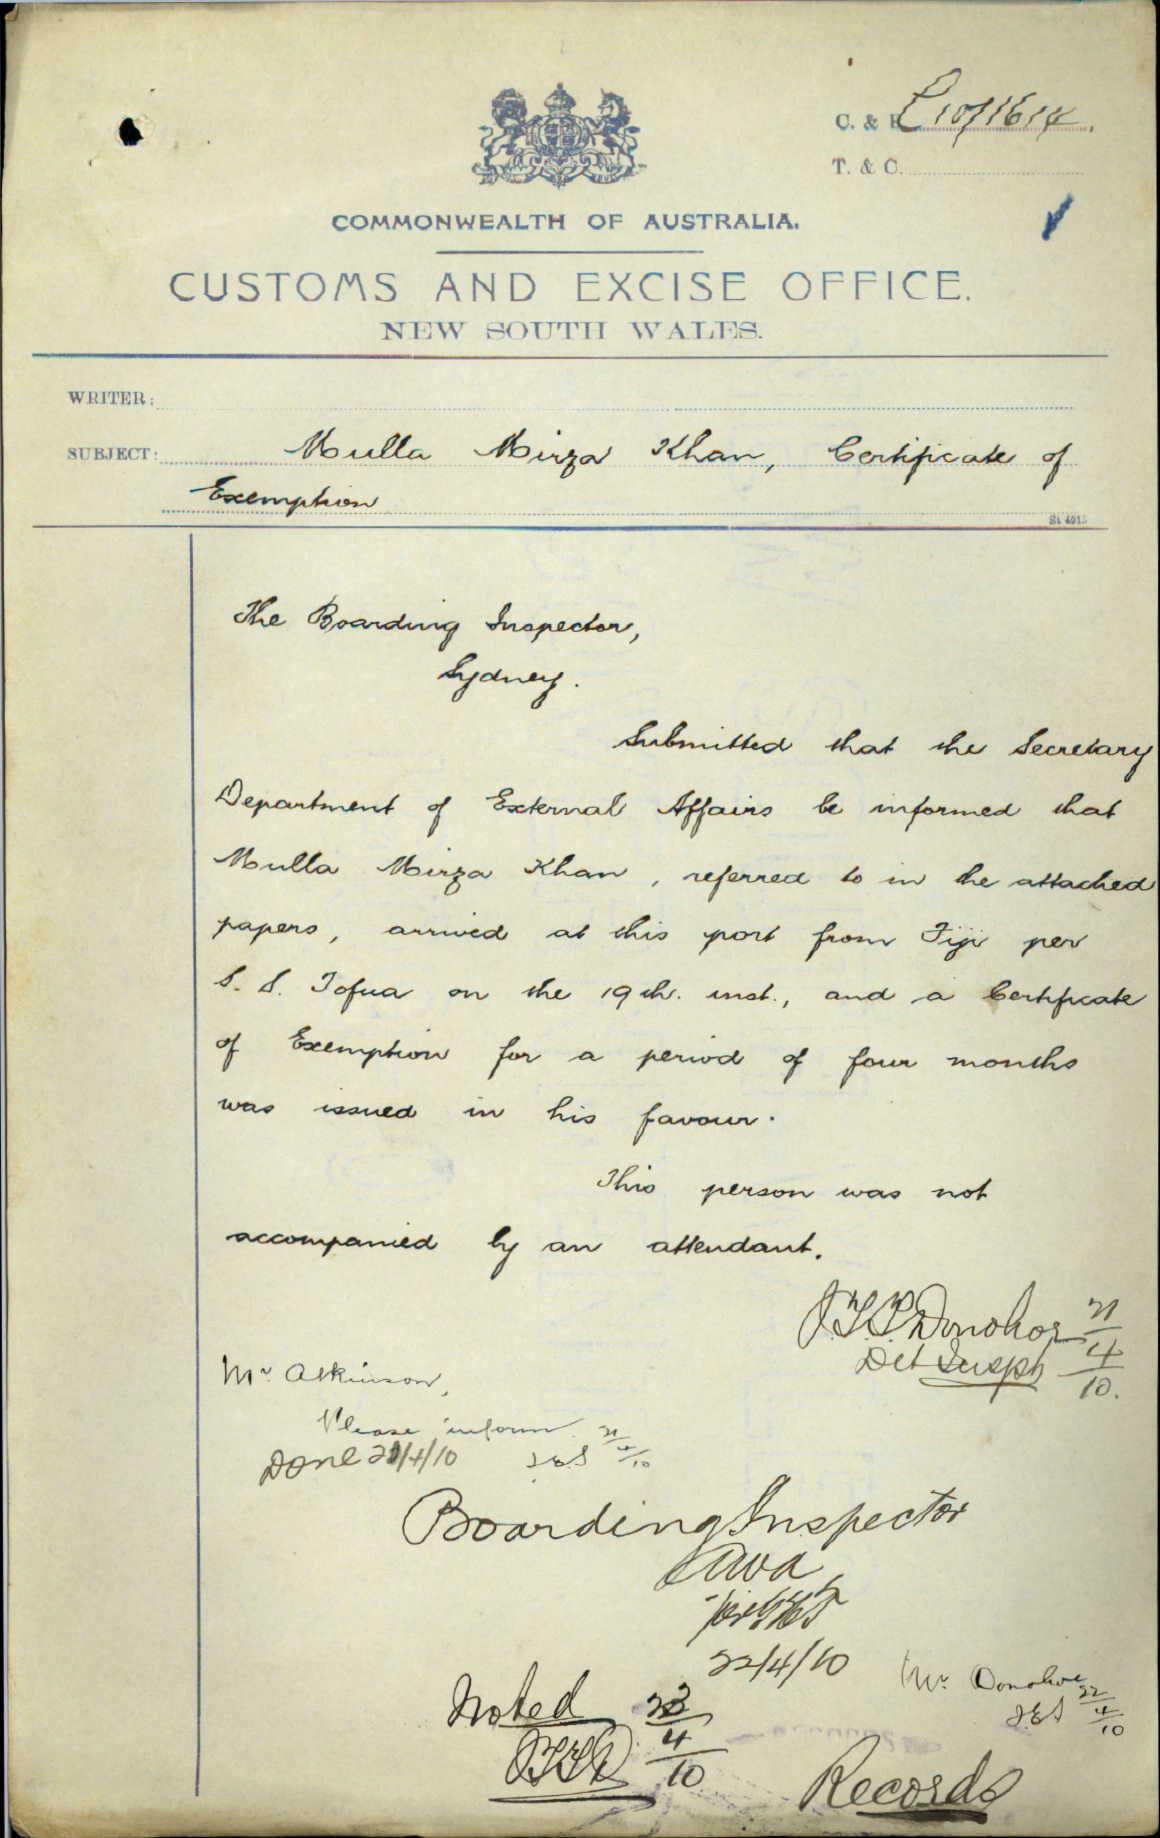 C. & E. 10/1614.
T. & C.
COMMONWEALTH OF AUSTRALIA.
CUSTOMS AND EXCISE OFFICE.
NEW SOUTH WALES.
WRITER:
SUBJECT: Mulla Mirza Khan, Certificate of
Exemption
St. 4015
The Boarding Inspector,
Sydney.
Submitted that the Secretary
Department of External Affairs be informed that
Mulla Mirza Khan, referred to in the attached
papers, arrived at this port from Fiji per
S. S. Tofua on the 19th. inst., and a Certificate
of Exemption for a period of four months
was issued in his favour.
This person was not
accompanied by an attendant.
Donohoe 21/4/10.
Det Inspr
Mr. Atkinson,
Please inform 21/4/10
Done 21/4/10
Boarding Inspector
22/4/10
Mr. Donohoe 22/4/10
Noted 23/4/10
Records